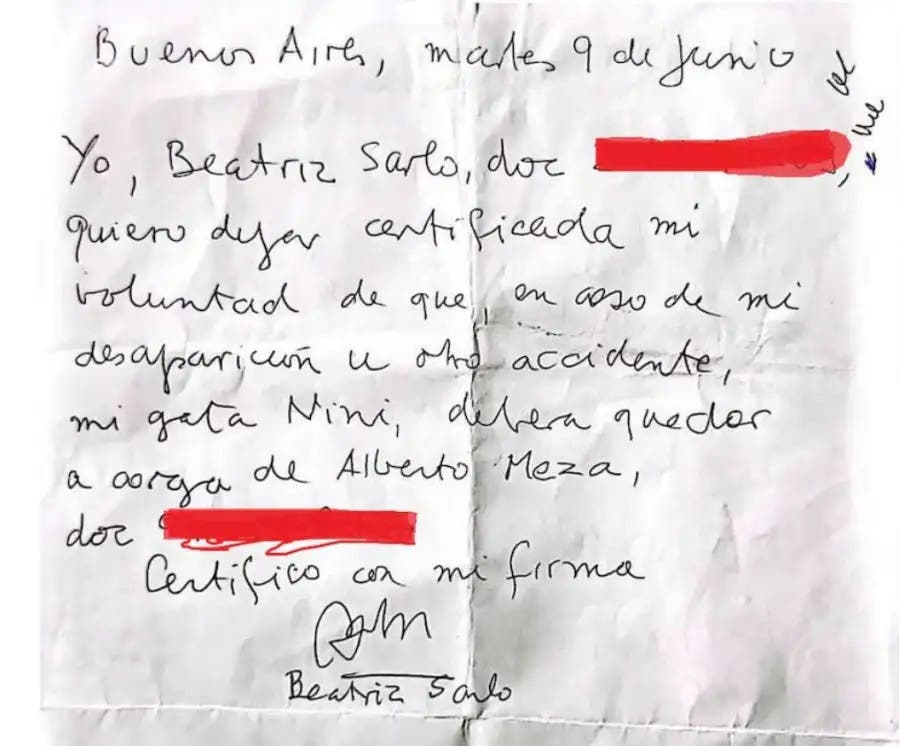 Buenos Aires, martes 9 de Junio
Yo, Beatriz Sarlo, doc
quiero dejar certificada mi
voluntad de que, en caso de mi
desaparición u otro accidente,
mi gata Nini, debera quedar
a carga de Alberto Meza,
doc
Certifico con mi firma
Beatriz Sarlo